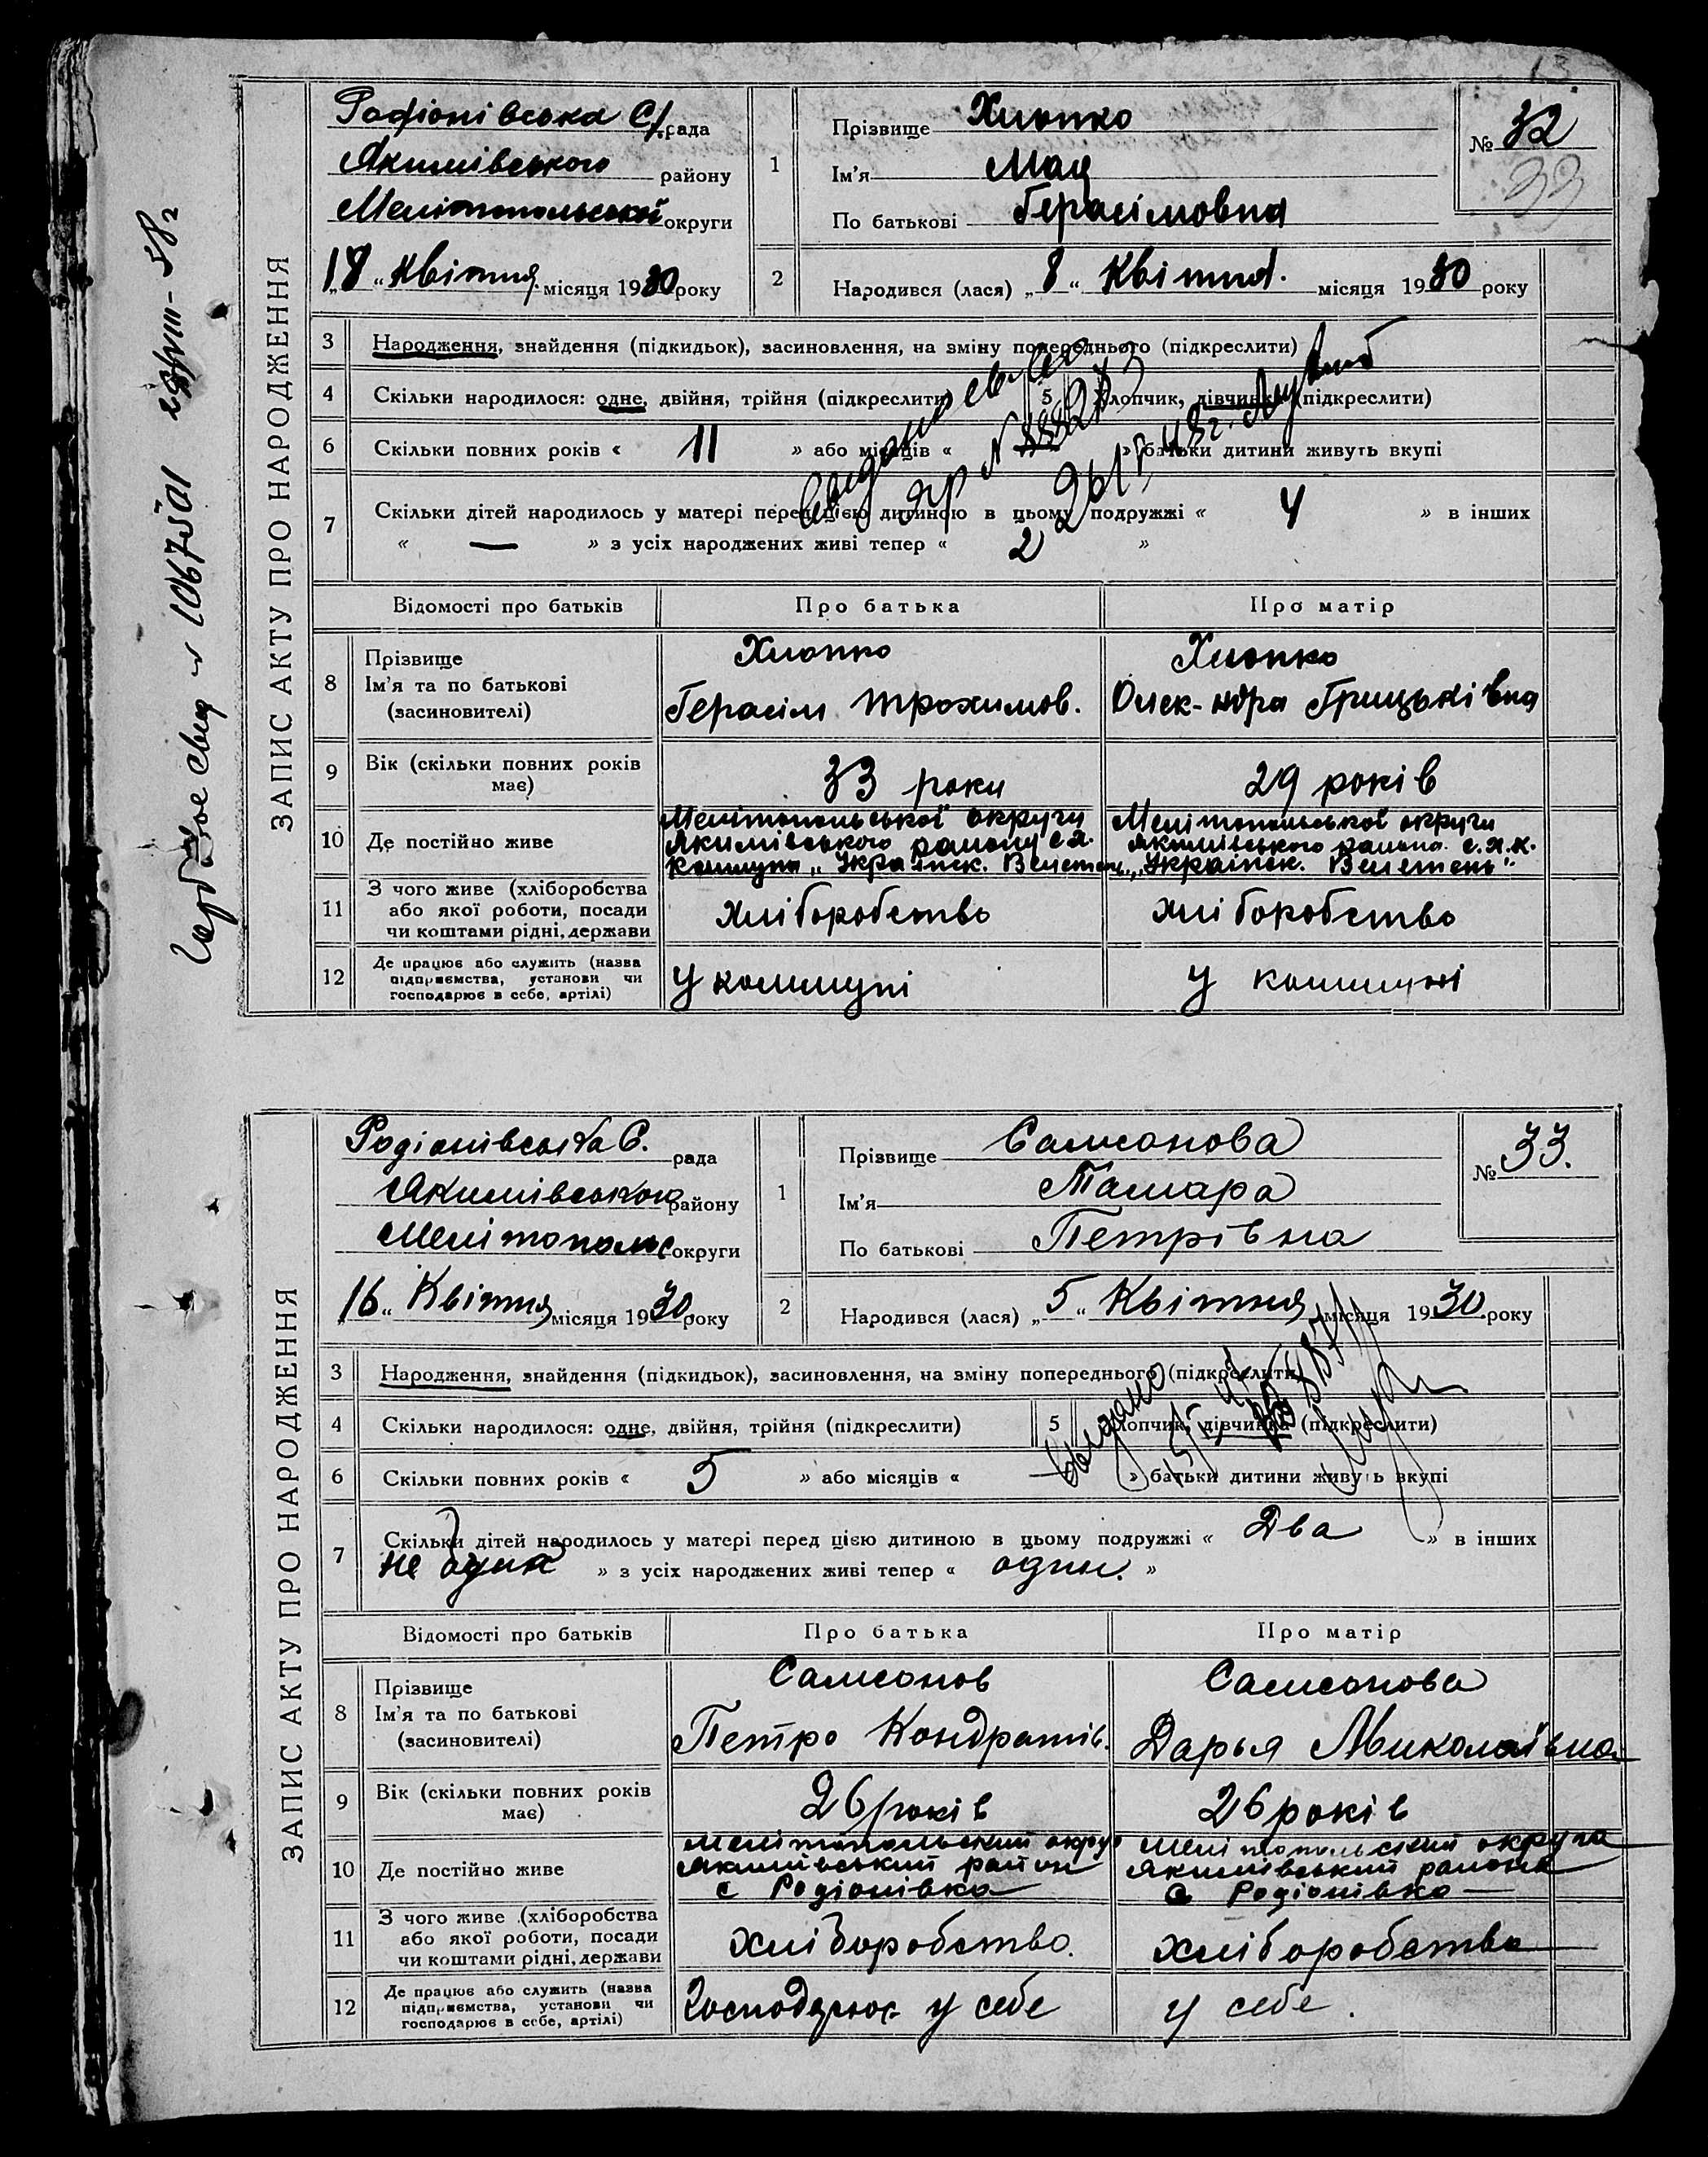 13
ЗАПИС АКТУ ПРО НАРОДЖЕННЯ
Радіонівська С/рада
Якимівського району
Мелітопольської округи
„18“ Квітня місяця 1930 року
1
Прізвище Хлопко
Ім'я Мая
По батькові Герасімовна
№ 32
33
2
Народився (лася) „8“ Квітня місяця 1930 року
3 Народження, знайдення (підкидьок), засиновлення, на зміну попереднього (підкреслити)
4 Скільки народилося: одне, двійня, трійня (підкреслити) 5 Хлопчик, дівчинка (підкреслити)
6 Скільки повних років « 11 » або місяців « » батьки дитини живуть вкупі
7 Скільки дітей народилось у матері перед цією дитиною в цьому подружжі « 4 » в інших
« — » з усіх народжених живі тепер « 2 »
Відомості про батьків Про батька Про матір
8
Прізвище
Ім'я та по батькові
(засиновителі)
Хлопко
Герасім Трохимов.
Хлопко
Олек-ндра Грицьківна
9
Вік (скільки повних років має)
33 роки
29 років
10 Де постійно живе
Мелітопольської округи
Якимівського району с.х.
Коммуна „Українск. Велетень„
Мелітопольської округи
Якимівського району с.х.к.
„Українск. Велетень“
11
З чого живе (хліборобства
або якої роботи, посади
чи коштами рідні, держави
хліборобство
хліборобство
12
Де працює або служить (назва
підприємства, установи чи
господарює в себе, артілі)
у коммуні
у коммуні
ЗАПИС АКТУ ПРО НАРОДЖЕННЯ
Радіонівська С. рада
Якимівського району
Мелітопольс округи
„16“ Квітня місяця 1930 року
1
Прізвище Самсонова
Ім'я Тамара
По батькові Петрівна
№ 33.
2
Народився (лася) „5“ Квітня місяця 1930 року
3 Народження, знайдення (підкидьок), засиновлення, на зміну попереднього (підкреслити)
4 Скільки народилося: одне, двійня, трійня (підкреслити) 5 Хлопчик, дівчинка (підкреслити)
6 Скільки повних років « 5 » або місяців « — » батьки дитини живуть вкупі
7 Скільки дітей народилось у матері перед цією дитиною в цьому подружжі « Два » в інших
не » з усіх народжених живі тепер « один. »
Відомості про батьків Про батька Про матір
8
Прізвище
Ім'я та по батькові
(засиновителі)
Самсонов
Петро Кондратів.
Самсонова
Дарья Миколаївна
9
Вік (скільки повних років має)
26 років
26 років
10 Де постійно живе
Мелітопольский округ
Якимівський район
с Родіонівка
Мелітопольский округа
Якимівський района
с Родіонівка
11
З чого живе (хліборобства
або якої роботи, посади
чи коштами рідні, держави
хліборобство.
хліборобство
12
Де працює або служить (назва
підприємства, установи чи
господарює в себе, артілі)
Господарює у себе
у себе.